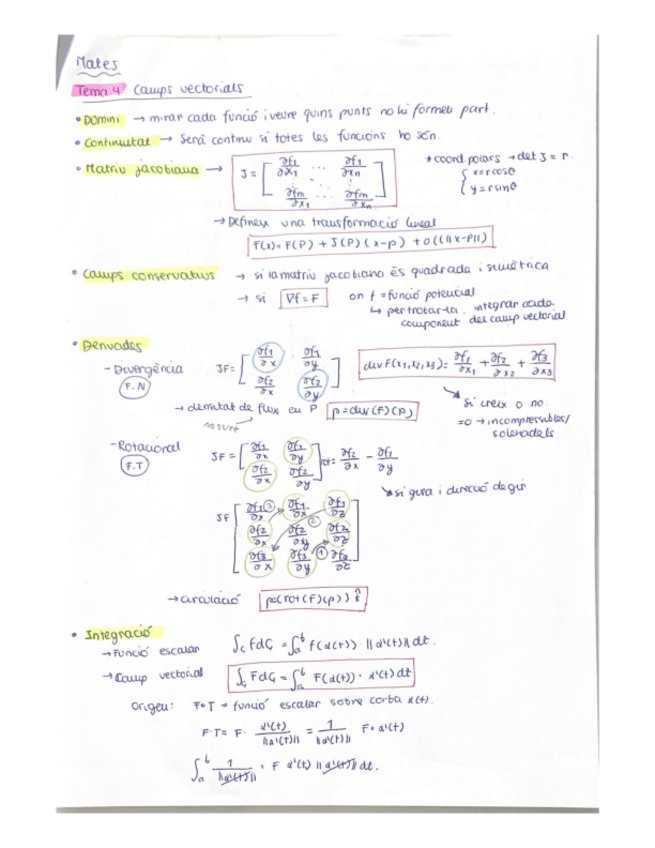 Mates
Tema 4 Camps vectorials
• Domini → mirar cada funció i veure quins punts no hi formen part.
• Continuitat → Serà continu si totes les funcions ho són.
• Matriu jacobiana → J = [ ∂f1/∂x1 ... ∂f1/∂xn
∂fm/∂x1 ... ∂fm/∂xn ]
* coord. polars → det J = r
{ x=rcosθ
y=rsinθ
→ Defineix una transformació lineal
F(x)= F(P) + J(P) (x-p) + o(||x-p||)
• Camps conservatius → si la matriu jacobiana és quadrada i simètrica
→ si ∇f = F on f = funció potencial
↳ per trobar-la, integrar cada
component del camp vectorial
• Derivades
- Divergència JF = [ ∂f1/∂x ∂f1/∂y
∂f2/∂x ∂f2/∂y ]
F.N
div F(x1,x2,x3) = ∂f1/∂x1 + ∂f2/∂x2 + ∂f3/∂x3
→ densitat de flux en P p=div(F)(p)
no surt
si creix o no
=0 → incompressibles/
solenoidals.
- Rotacional JF = [ ∂f1/∂x ∂f1/∂y
∂f2/∂x ∂f2/∂y ] rot = ∂f2/∂x - ∂f1/∂y
F.T
si gira i direcció de gir
JF [ ∂f1/∂x ③ ∂f1/∂x ∂f1/∂z
∂f2/∂x ∂f2/∂y ② ∂f2/∂z
∂f3/∂x ∂f3/∂y ① ∂f3/∂z ]
→ circulació
• Integració
→ Funció escalar ∫c FdG = ∫a^b f(α(t)) · ||α'(t)|| dt.
→ Camp vectorial ∫c FdG = ∫a^b F(α(t)) · α'(t) dt
Origen: F•T = funció escalar sobre corba α(t).
F·T = F · α'(t)/||α'(t)|| = 1/||α'(t)|| F • α'(t)
∫a^b 1/||α'(t)|| • F α'(t) ||α'(t)|| dt.